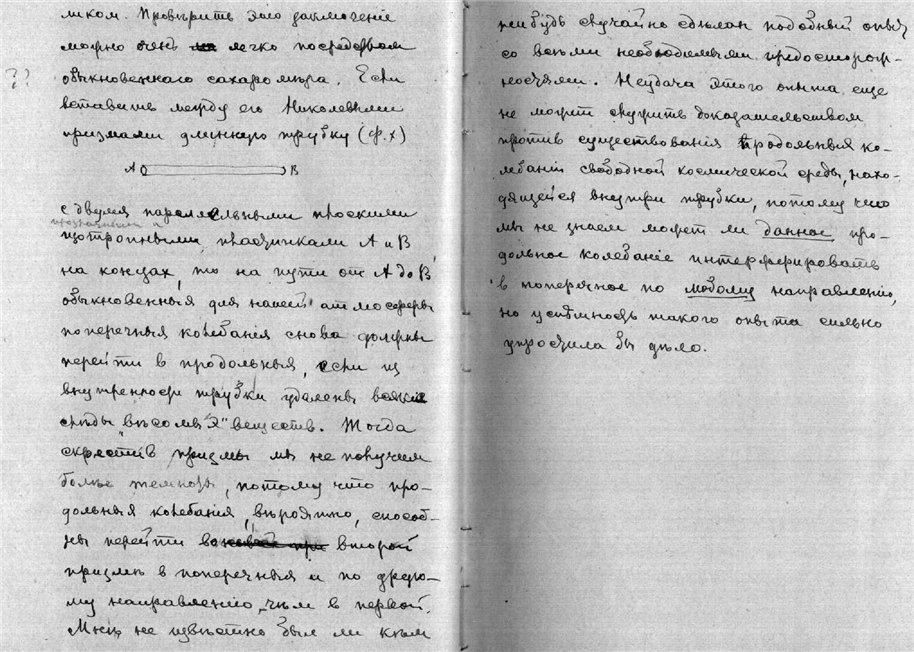 ликом. Провѣрить это заключеніе
можно очень легко посредствомъ
обыкновеннаго сахарометра. Если
??
вставить между его Николевыми
призмами длинную трубку (ф. х)
А В
с двумя параллельными плоскими
прозрачными и
изотропными пластинками А и В
на концах, то на пути от А до В
обыкновенныя для нашей атмосферы
поперечныя колебанія снова должны
перейти в продольныя, если из
внутренности трубки удалены всякіе
слѣды „вѣсомыхъ" веществ. Тогда
скрестив призмы мы не получим
болѣе темноты, потому что про-
дольныя колебанія, вѣроятно, способ-
ны перейти во второй
призмѣ в поперечныя и по друго-
му направленію, чѣм в первой.
Мнѣ не извѣстно был ли кѣм
нибудь случайно сдѣлан подобный опыт
со всѣми необходимыми предосторож-
ностями. Неудача этого опыта еще
не может служить доказательством
против существованія продольныя ко-
лебаній свободной космической среды, нахо-
дящейся внутри трубки, потому что
мы не знаем может ли данное про-
дольное колебаніе интерферировать
в поперечное по любому направленію,
но успѣшность такого опыта сильно
упростила бы дѣло.